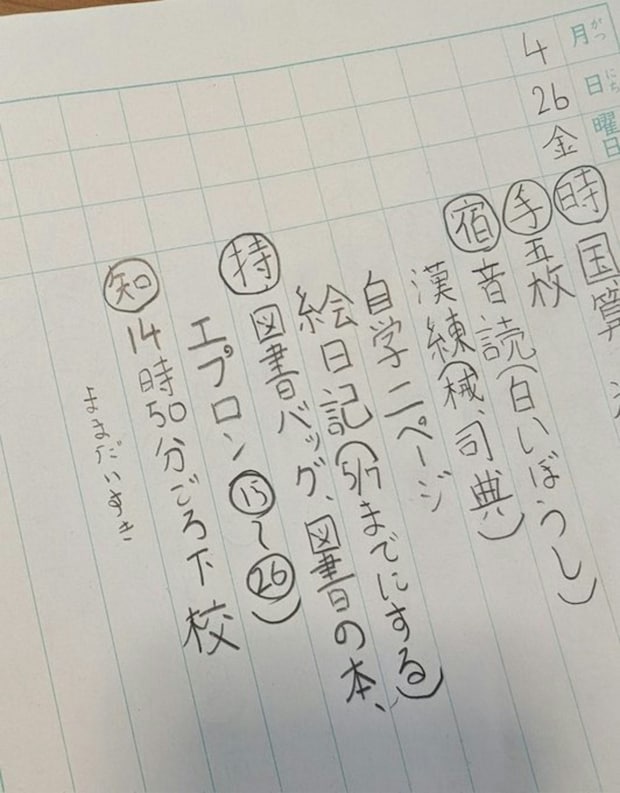 4月
26日
金曜日
時 国算
手 五枚
宿 音読(白いぼうし)
漢練(械、司典)
自学 二ページ
絵日記(5/7までにする)
持 図書バッグ、図書の本、
エプロン ⑮〜㉖)
知 14時50分ごろ下校
ままだいすき